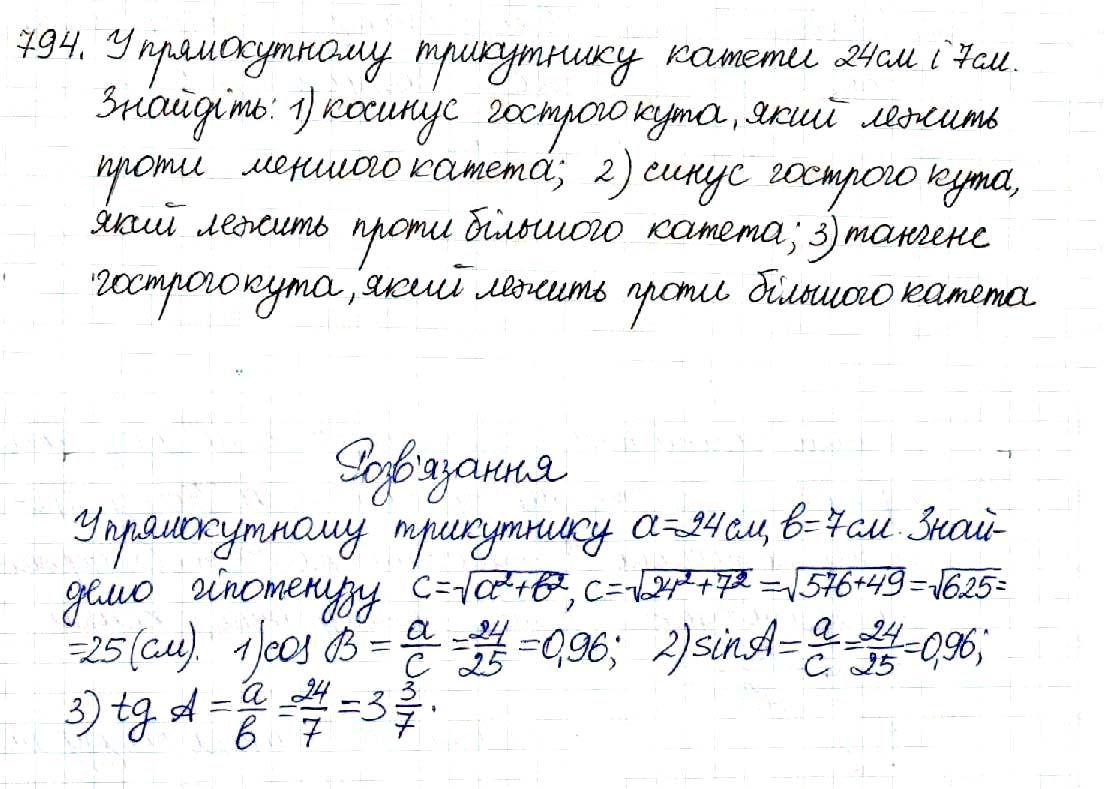 794. У прямокутному трикутнику катети 24см і 7см.
Знайдіть: 1) косинус гострого кута, який лежить
проти меншого катета; 2) синус гострого кута,
який лежить проти більшого катета; 3) тангенс
гострого кута, який лежить проти більшого катета
Розв'язання
У прямокутному трикутнику a=24см, b=7см. Знай-
демо гіпотенузу c=√a²+b², c=√24²+7² =√576+49 =√625=
=25(см). 1) cos B = a/c = 24/25 =0,96; 2) sin A = a/c = 24/25 =0,96;
3) tg A = a/b = 24/7 = 3 3/7.